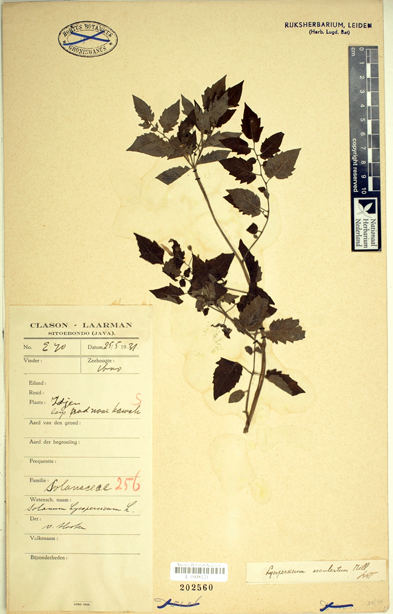 HORTUS BOTANICUS
GRONINGANUS
RIJKSHERBARIUM, LEIDEN
(Herb. Lugd. Bat)
0 1 2 3 4 5 6 7 8 9 10
cm
copyright reserved
Nationaal
Herbarium
Nederland
CLASON - LAARMAN
SITOEBONDO (JAVA).
No. E 70 Datum 25 5 1931
Vinder: Zeehoogte:
Eiland:
Resid:
Plaats: Idjen
pad naar kawah
Aard van den grond:
Aard der begroeiing:
Frequentie:
Familie: Solanaceae 256
Wetensch. naam:
Solanum lycopersicum L.
Det:
Volksnaam:
Bijzonderheden:
202560
Lycopersicum esculentum Mill.